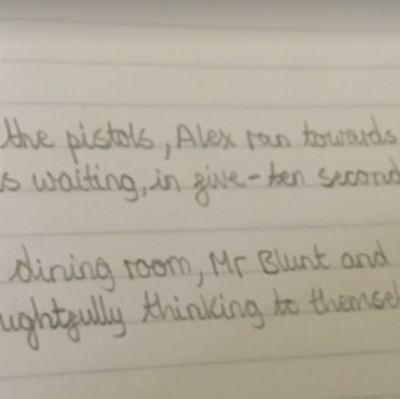 the pistols, Alex ran towards
s waiting, in five-ten second
dining room, Mr Blunt and
ughtfully thinking to themsel